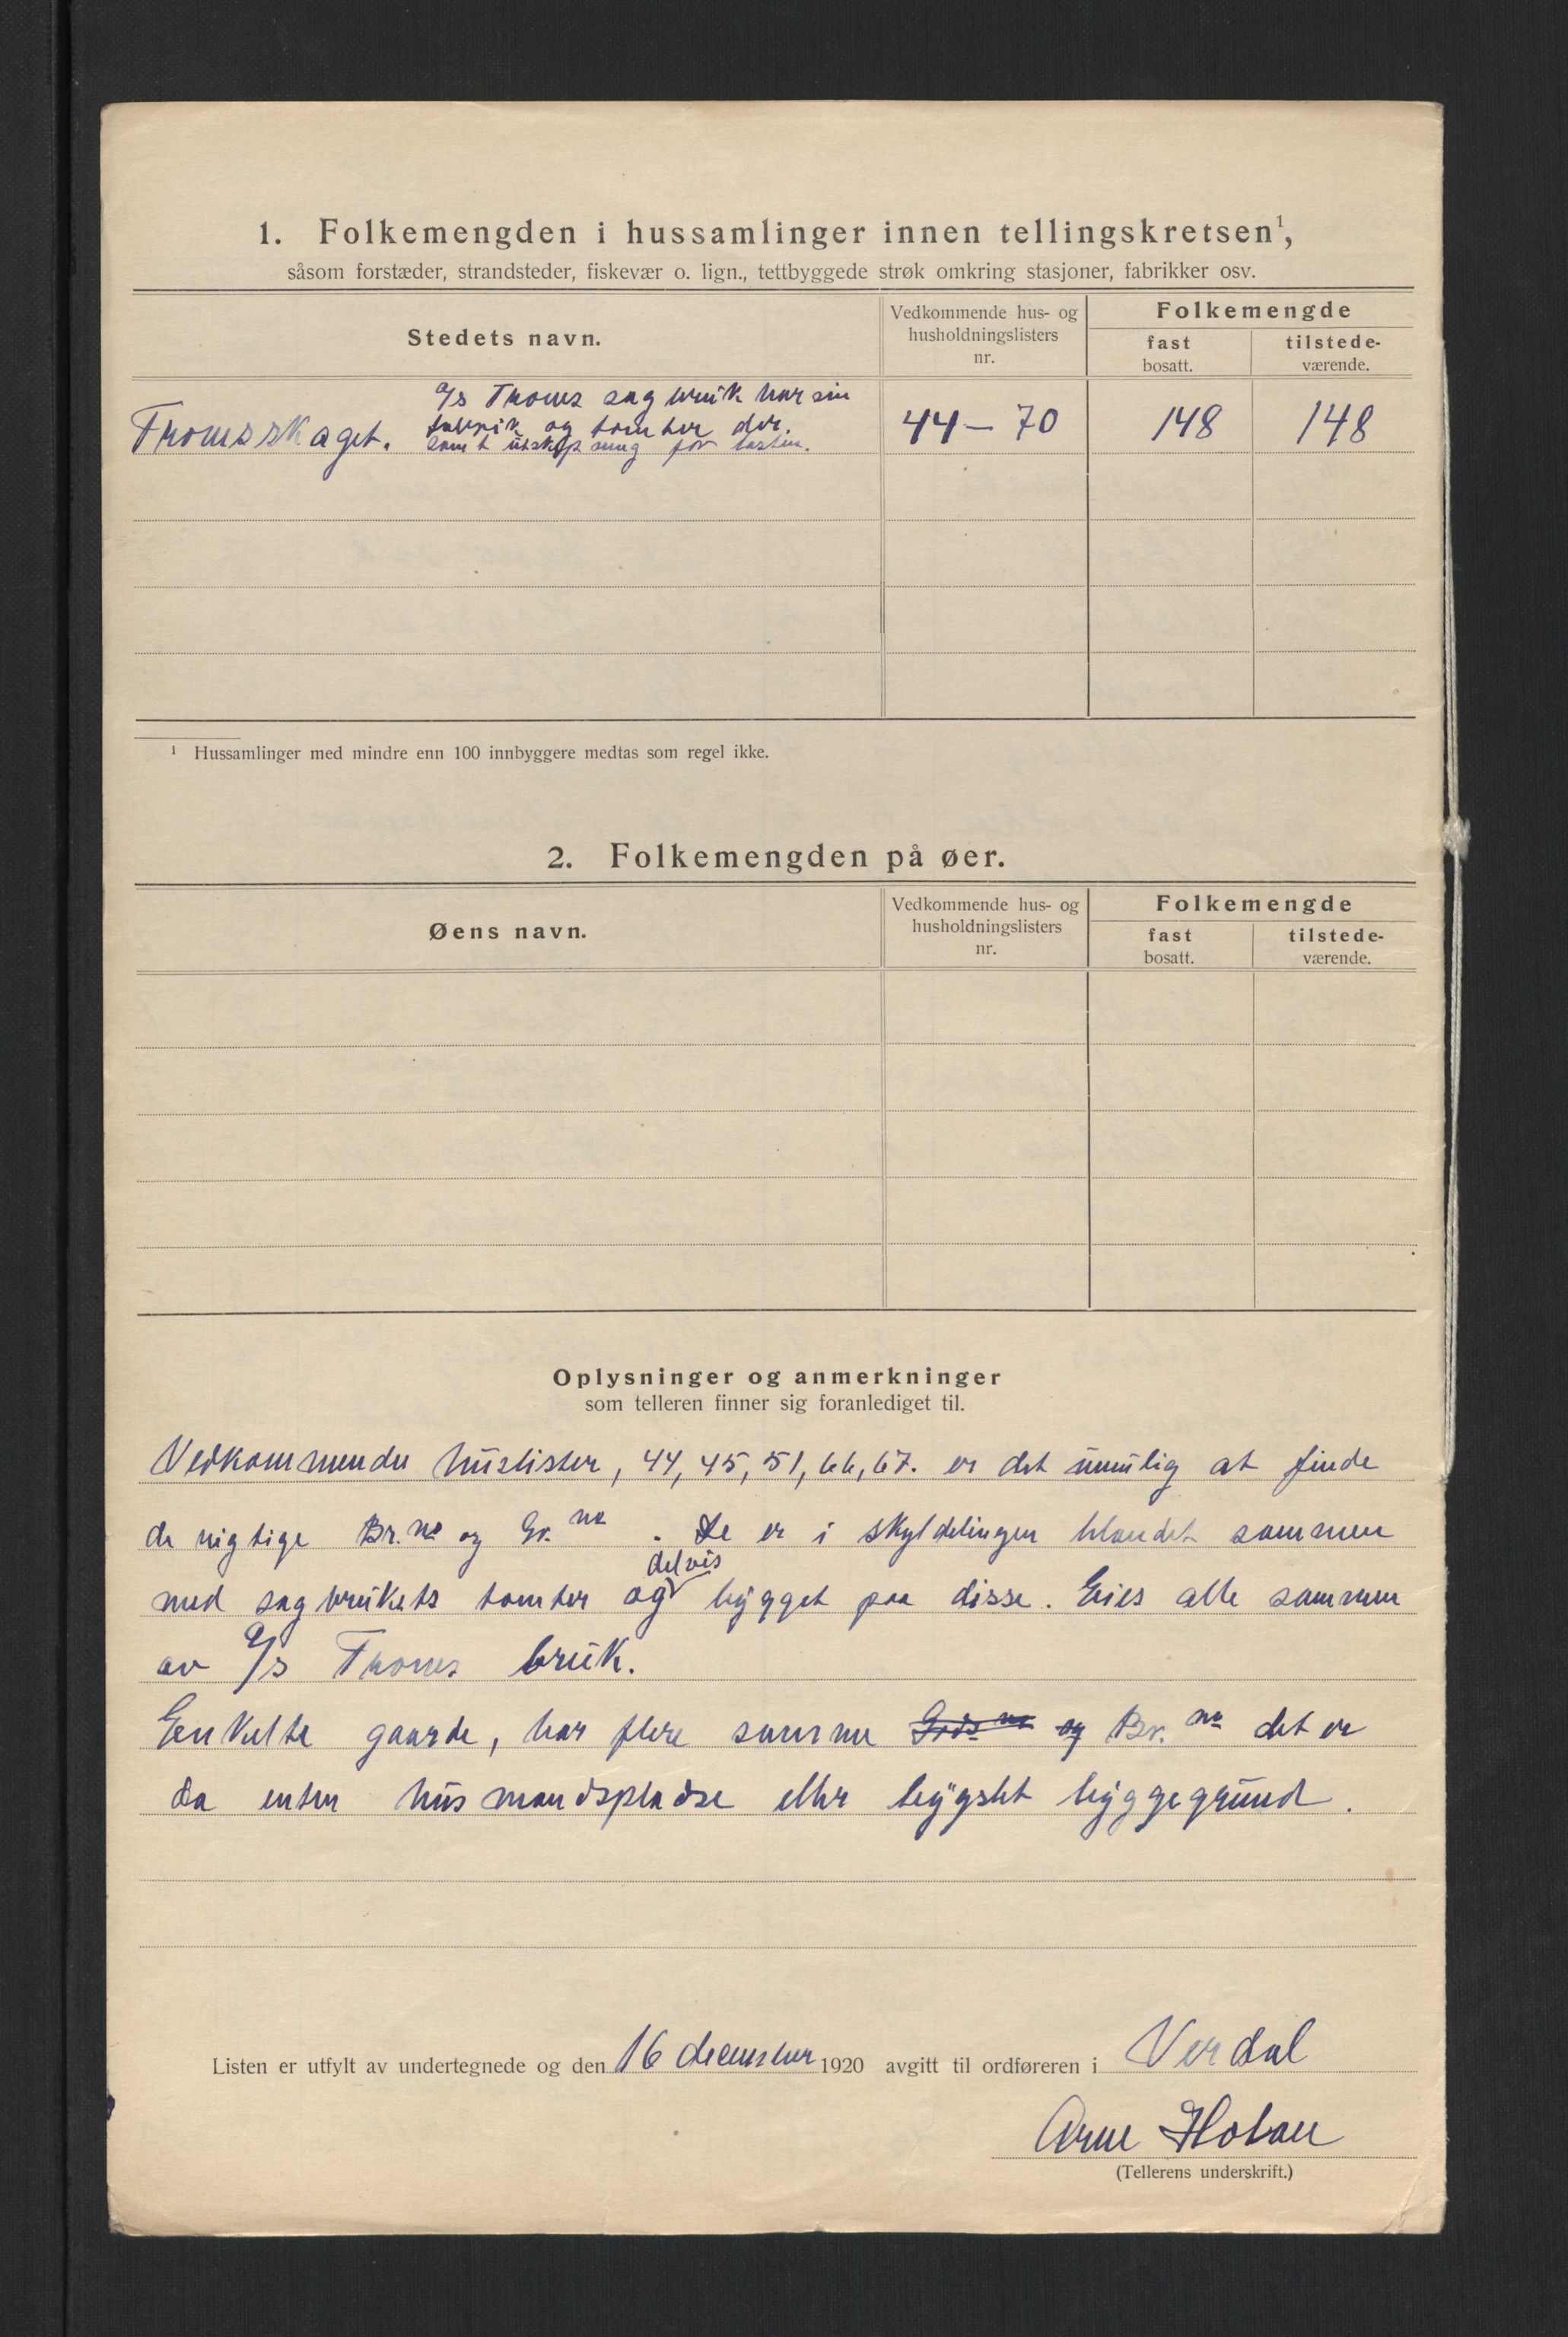 1. Folkemengden i hussamlinger innen tellingskretsen¹,
såsom forstæder, strandsteder, fiskevær o. lign., tettbyggede strøk omkring stasjoner, fabrikker osv.
Stedets navn.
Vedkommende hus- og husholdningslisters nr.
Folkemengde
fast bosatt.
tilstede-værende.
A/s Trones sagbruk har sin
fabrik og tomter der.
Tronesskaget.
samt utskipning for lasten.
44 – 70
148
148
¹ Hussamlinger med mindre enn 100 innbyggere medtas som regel ikke.
2. Folkemengden på øer.
Øens navn.
Vedkommende hus- og husholdningslisters nr.
Folkemengde
fast bosatt.
tilstede-værende.
Oplysninger og anmerkninger
som telleren finner sig foranlediget til.
Vedkommende huslister, 44, 45, 51, 66, 67. er det umulig at finde
de rigtige Br. no og Gr. no. De er i skyldelingen blandet sammen
delvis
med sagbrukets tomter og bygget paa disse. Eies alle sammen
av A/s Trones bruk.
Enkelte gaarde, har flere samme og Br. no det er
da enten husmandspladse eller bygslet byggegrund.
Listen er utfylt av undertegnede og den 16 december 1920 avgitt til ordføreren i Verdal
Arne Holan
(Tellerens underskrift.)